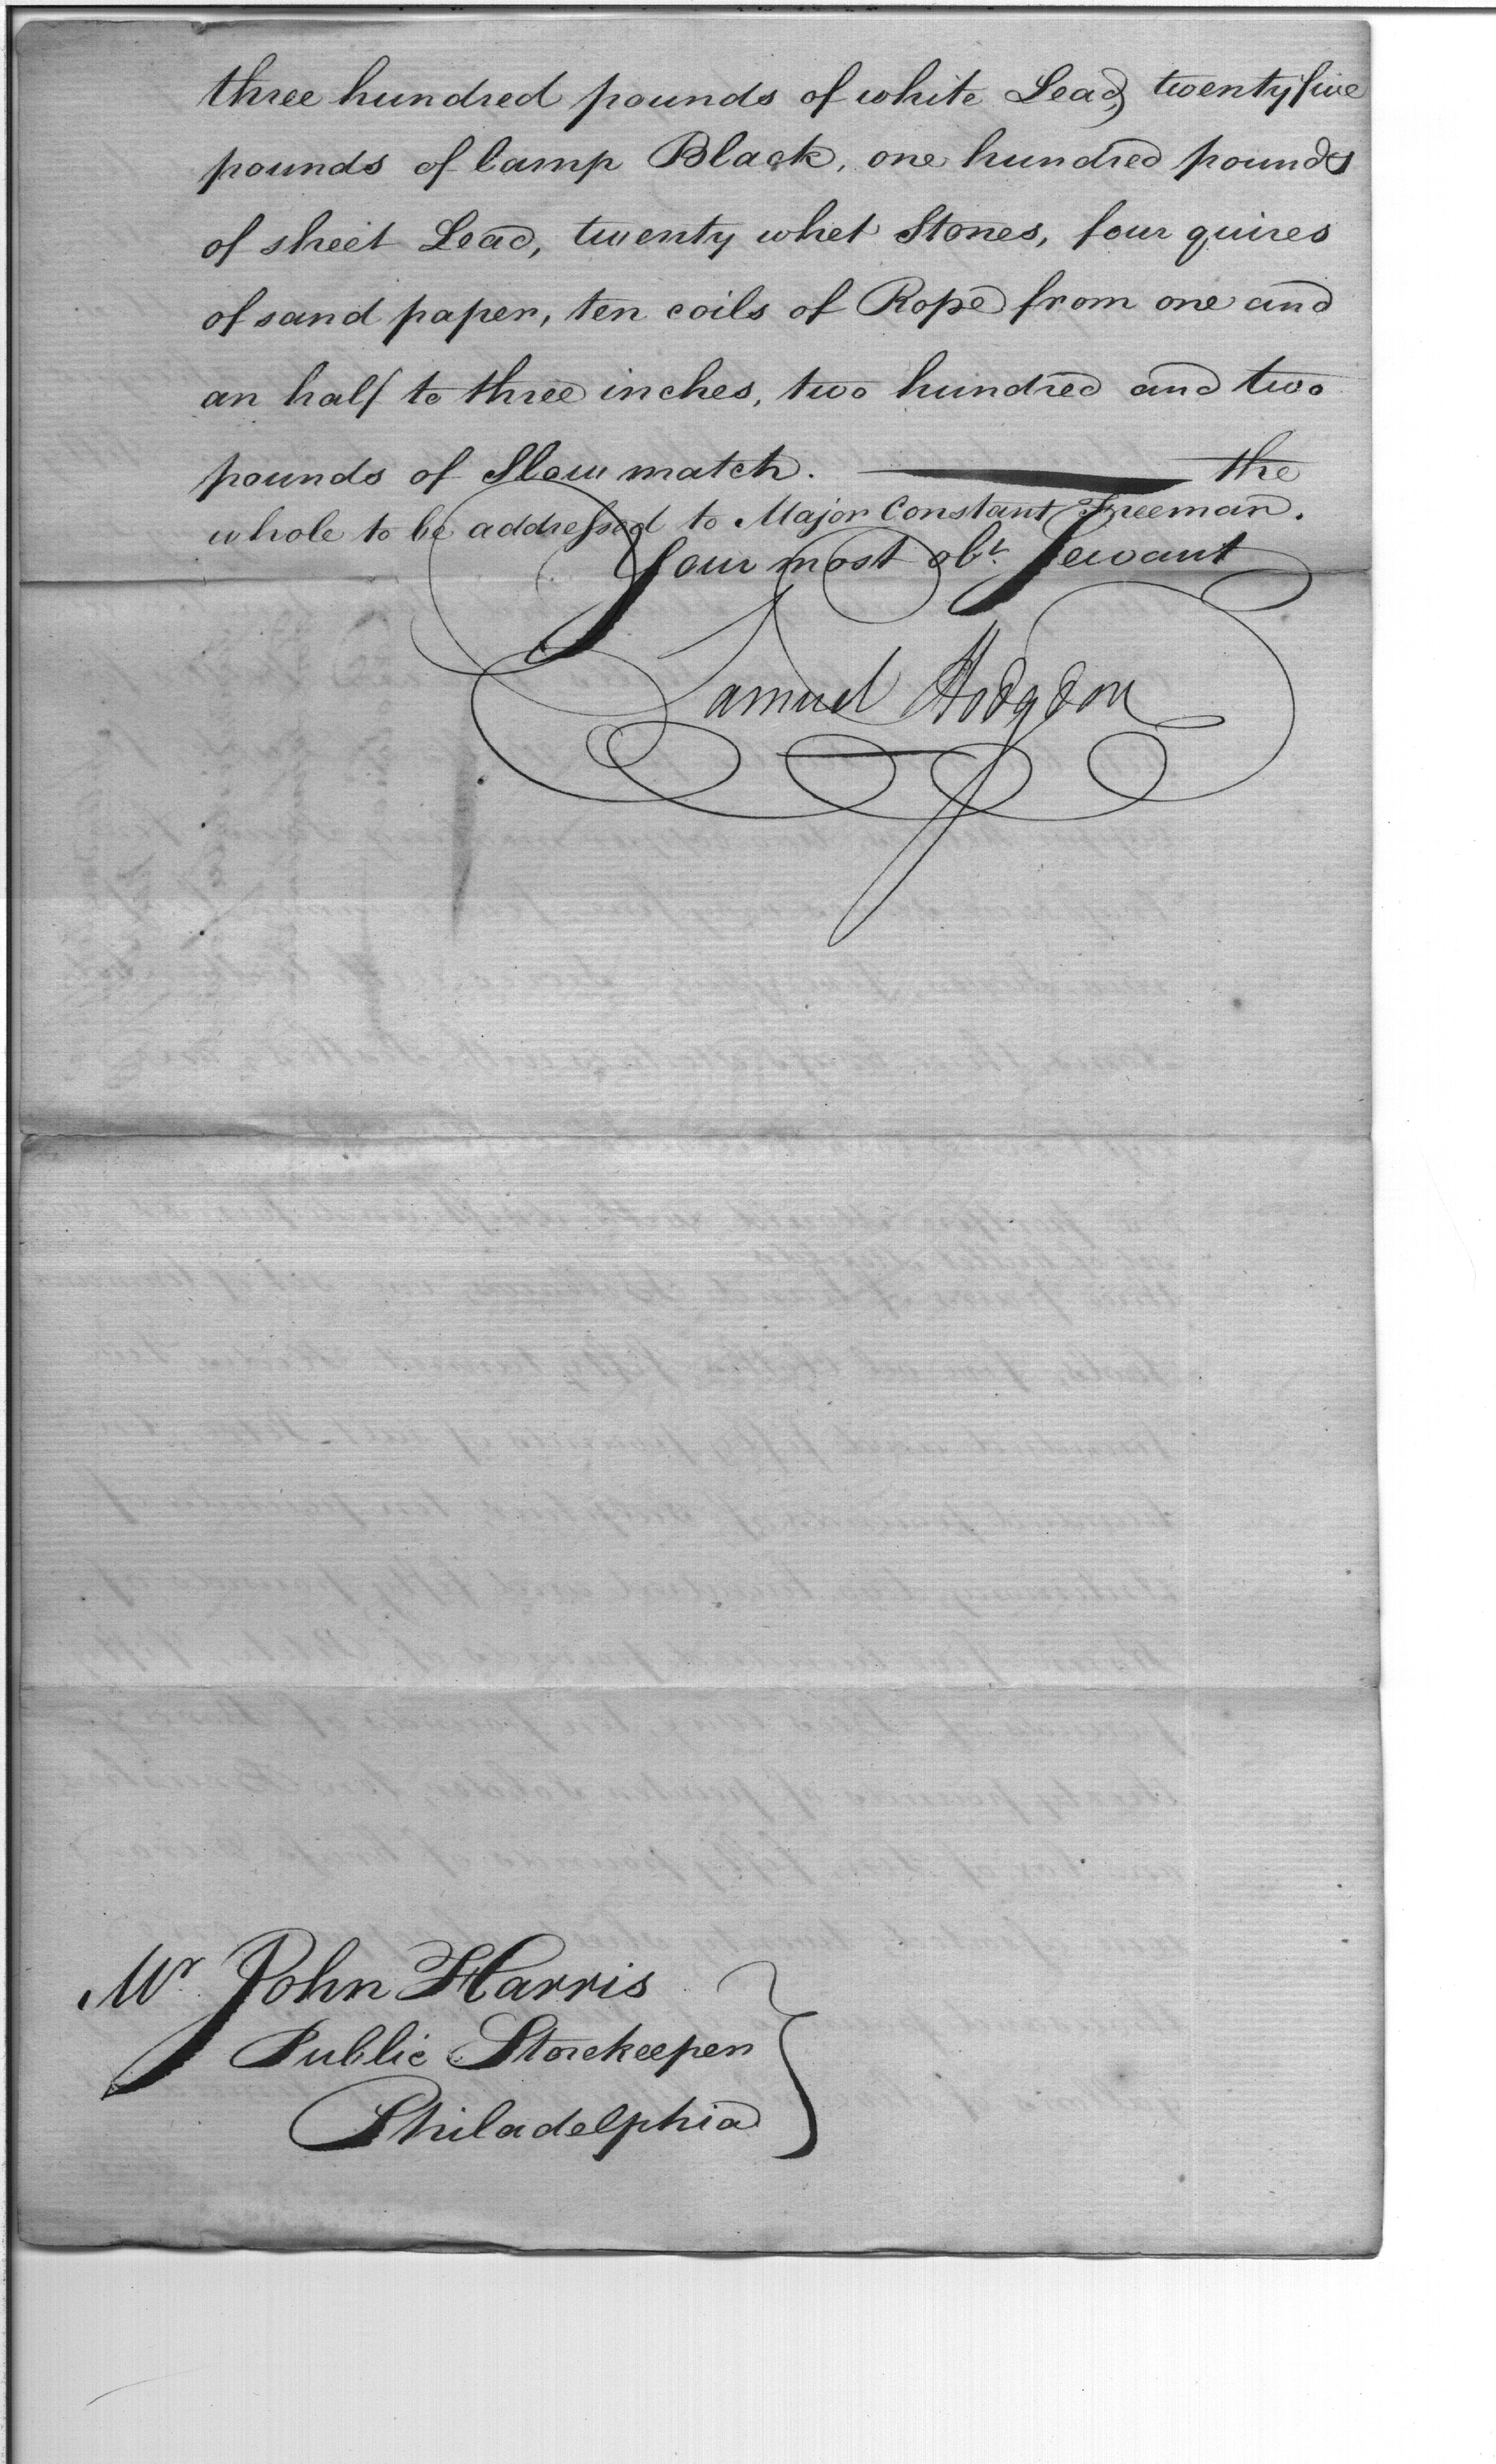 three hundred pounds of white Lead, twenty five
pounds of lamp Black, one hundred pounds
of sheet Lead, twenty whet Stones, four quires
of sand paper, ten coils of Rope from one and
an half to three inches, two hundred and two
pounds of Slow match. the
whole to be addressed to Major Constant Freeman.
Your most obt. Servant
Samuel Hodgdon
Mr. John Harris
Public Storekeeper
Philadelphia